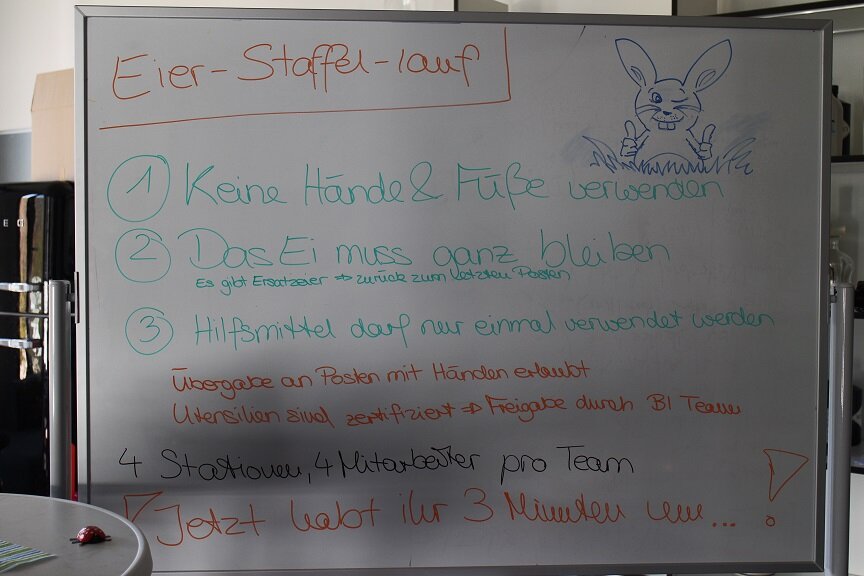 Eier-Staffel-lauf
1 Keine Hände & Füße verwenden
2 Das Ei muss ganz bleiben
Es gibt Ersatzeier => zurück zum letzten Posten
3 Hilfsmittel darf nur einmal verwendet werden
Übergabe an Posten mit Händen erlaubt
Utensilien sind zertifiziert => Freigabe durch BI Team
4 Stationen, 4 Mitarbeiter pro Team
! Jetzt habt ihr 3 Minuten um... !